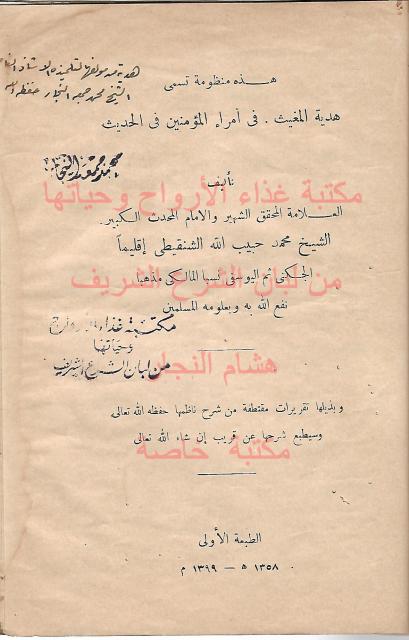 هدية من مؤلفها لتلميذه الاستاذ
الشيخ محمد النجار حفظه الله
هذه منظومة تسمى
هدية المغيث . فى أمراء المؤمنين فى الحديث
محمد النجار
تأليف
مكتبة غذاء الأرواح وحياتها
العلامة المحقق الشهير والامام المحدث الكبير.
الشيخ محمد حبيب الله الشنقيطى إقليماً
الجكنى ثم اليوسفى نسباً المالكى مذهباً
من لبان الشرع الشريف
نفع الله به وبعلومه المسلمين
مكتبة غذاء الارواح
وحياتها
من لبان الشرع الشريف
هشام النجار
وبذيلها تقريرات مقتطفة من شرح ناظمها حفظه الله تعالى
وسيطبع شرحها عن قريب إن شاء الله تعالى
مكتبة خاصة
الطبعة الأولى
١٣٥٨ ه — ١٣٩٩ م